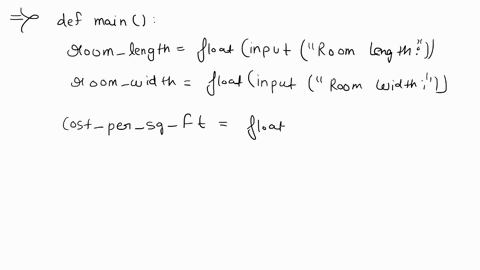 => def main():
room_length = float(input("Room length:"))
room_width = float(input("Room width:"))
Cost_per_sq_ft = float